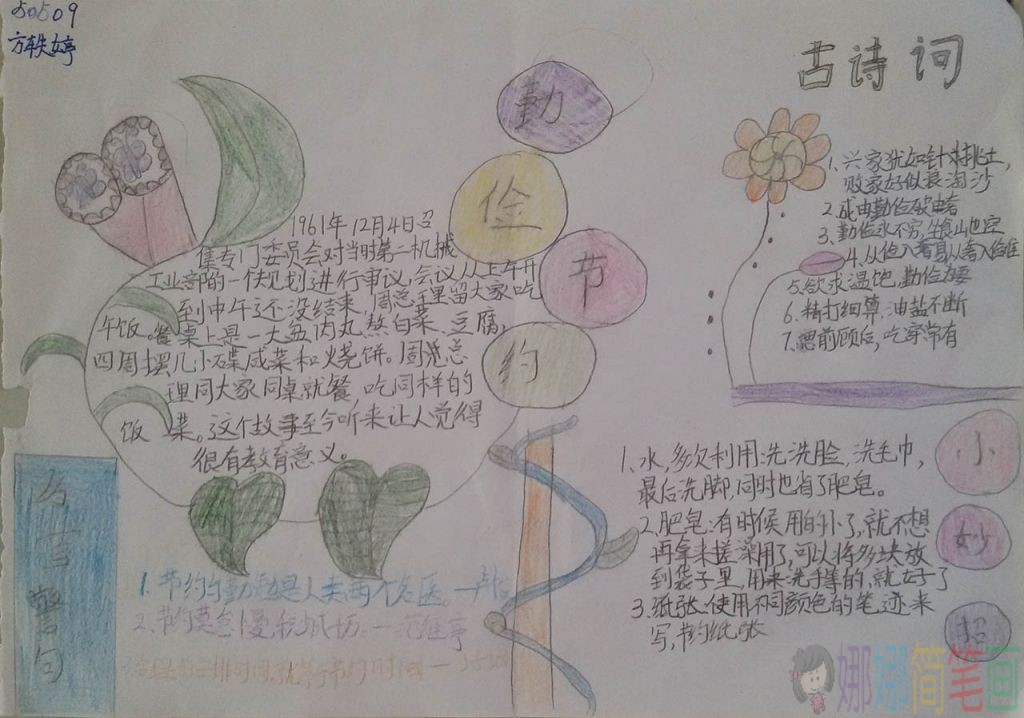 50509
方轶婷
勤
俭
节
约
古诗词
1961年12月4日召
集专门委员会对当时第二机械
工业部的一个规划进行审议,会议从上午开
到中午还没结束,周总理留大家吃
午饭。餐桌上是一大盆肉丸熬白菜、豆腐,
四周摆几小碟咸菜和火烧饼。周总
理同大家同桌就餐,吃同样的
饭菜。这个故事至今听来让人觉得
很有教育意义。
1.兴家犹如针挑土,
败家好似浪淘沙
2.成由勤俭破由奢
3.勤俭永不穷,坐食山也空
4.从俭入奢易从奢入俭难
5.欲求温饱,勤俭为要
6.精打细算,油盐不断
7.瞻前顾后,吃穿常有
名言警句
1.节约与勤勉是人类两个名医。
2.节约莫怠慢,积少成
小妙招
1.水,多次利用:洗洗脸,洗毛巾,
最后洗脚,同时也省了肥皂。
2.肥皂:有时候用的小了,就不想
再拿来搓澡用了,可以将多块放
到袋子里,用来洗手等的,就好了
3.纸张:使用不同颜色的笔迹来
写,节约纸张
娜娜简笔画